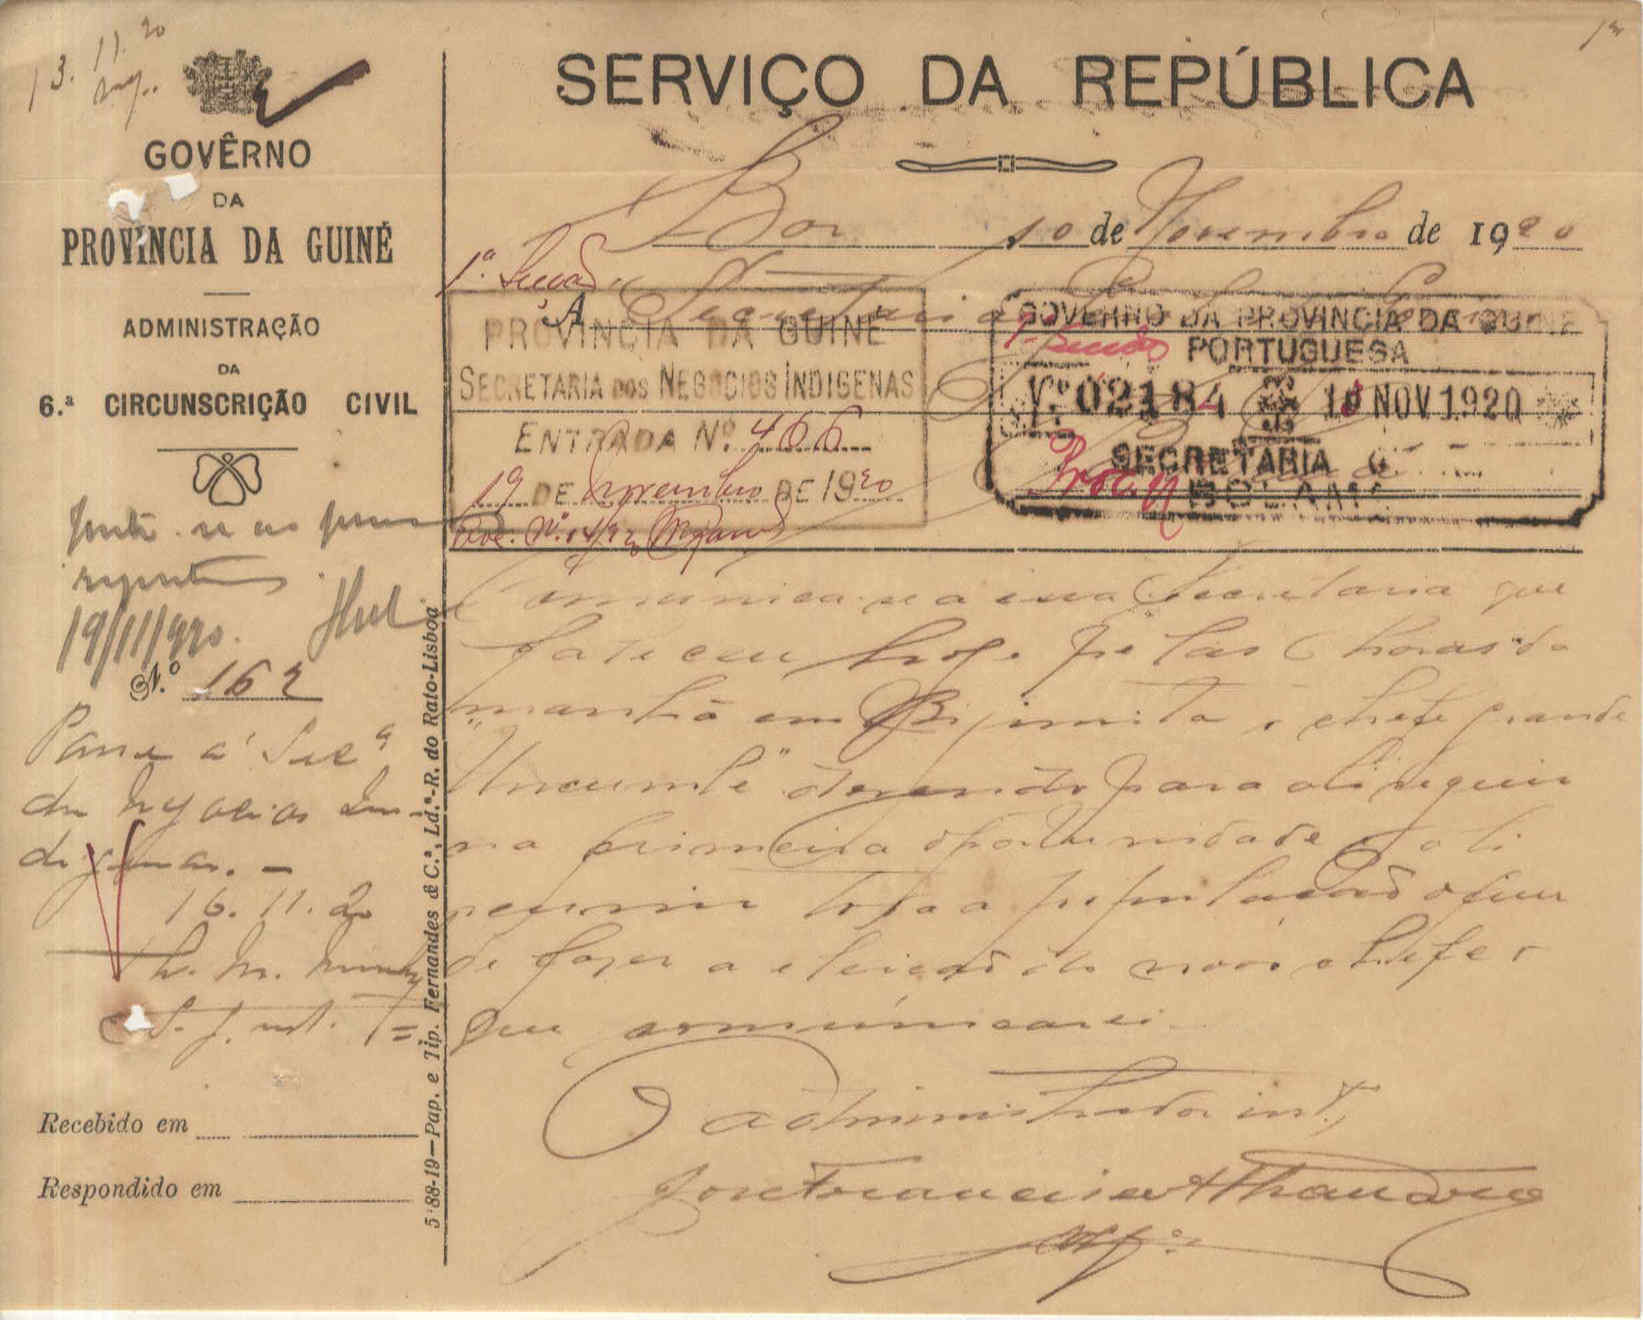 13.11.20
GOVÊRNO
DA
PROVÍNCIA DA GUINÉ
ADMINISTRAÇÃO
DA
6.ª CIRCUNSCRIÇÃO CIVIL
Junte-se ao
19/11/920.
N.º 162
Passe á Secª
dos Negocios In-
digenas. -
16.11.20
Recebido em
Respondido em
5188-19—Pap. e Tip. Fernandes & C.ª, Ld.ª-R. do Rato-Lisboa
SERVIÇO DA REPÚBLICA
Bor 10 de Novembro de 1920
1.ª Secção
A Secretaria
PROVINCIA DA GUINÉ
SECRETARIA DOS NEGOCIOS INDIGENAS
ENTRADA Nº 466
19 DE Novembro DE 1920
GOVERNO DA PROVINCIA DA GUINE
PORTUGUESA
Nº 02184 NOV 1920
SECRETARIA
BOLAMA
Comunica-se a essa Secretaria que
faleceu hoje pelas 6 horas da
manhã em Bijimita o chefe grande
"Uncumle" devendo para ali seguir
na primeira oportunidade e ali
reunir toda a população a fim
de fazer a eleição do novo chefe o
que comunicarei.
O administrador int.,
José Francisco